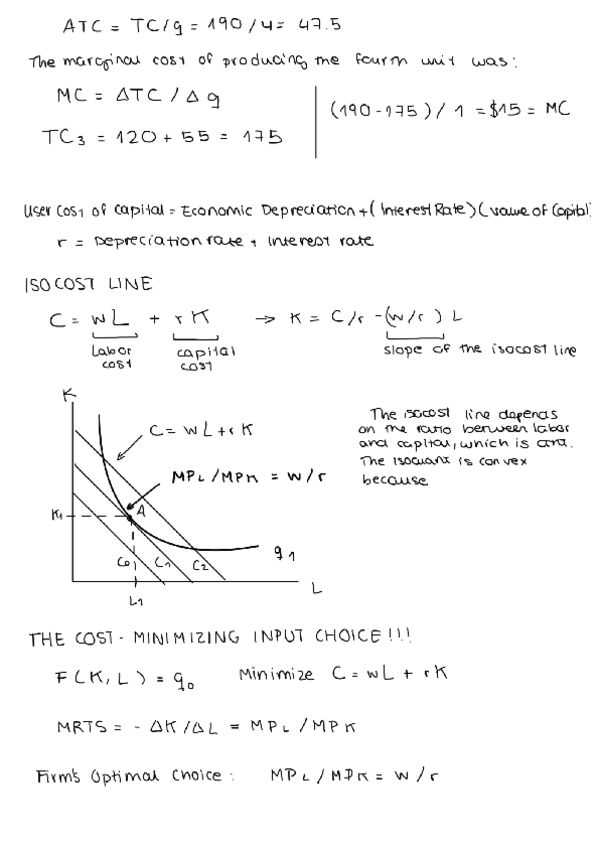 ATC = TC/q = 190/4 = 47.5
The marginal cost of producing the fourth unit was:
MC = ΔTC / Δq
TC3 = 120 + 55 = 175
(190-175) / 1 = $15 = MC
User Cost of capital = Economic Depreciation + (Interest Rate) (value of Capital)
r = Depreciation rate + Interest rate
ISOCOST LINE
C = wL + rK → K = C/r - (w/r) L
Labor cost
capital cost
slope of the isocost line
K
C = wL + rK
MPL/MPK = w/r
K1
A
C0 C1 C2
q1
L
L1
The isocost line depends
on the ratio between labor
and capital, which is
The isoquant is convex
because
THE COST-MINIMIZING INPUT CHOICE!!!
F(K, L) = q0 Minimize C = wL + rK
MRTS = - ΔK/ΔL = MPL/MPK
Firm's Optimal Choice: MPL/MPK = w/r